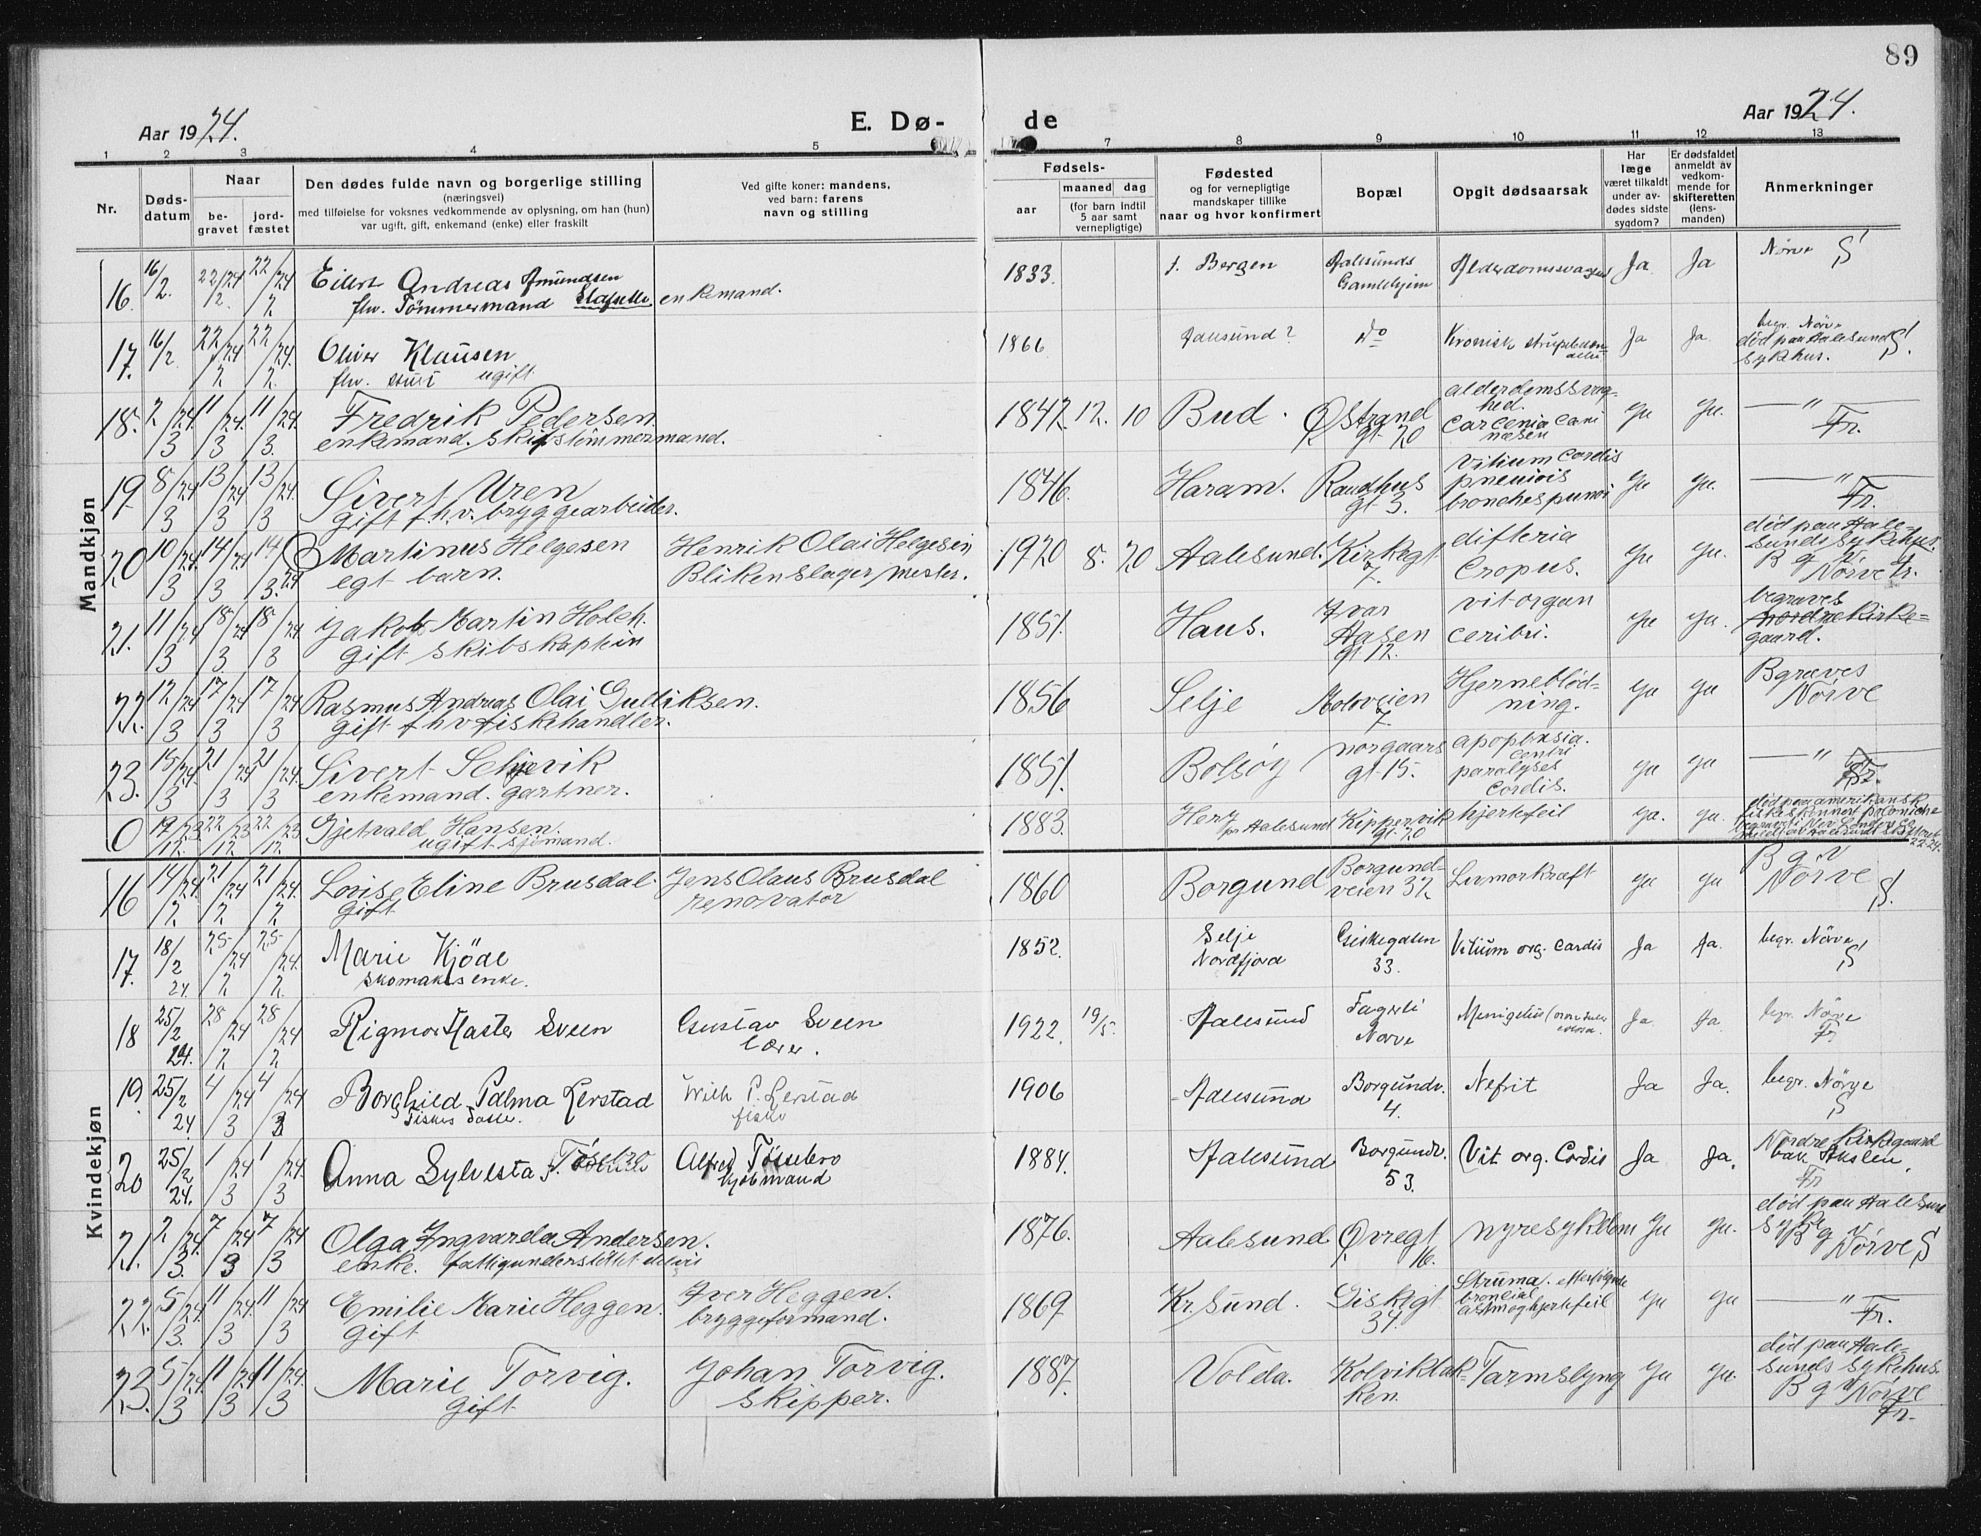 89
Aar 1924.
E. Dø-
de
Aar 1924.
1 2 3 4 5 7 8 9 10 11 12 13
Nr.
Døds-
datum
Naar
be-
gravet
jord-
fæstet
Den dødes fulde navn og borgerlige stilling
(næringsvei)
med tilføielse for voksnes vedkommende av oplysning, om han (hun)
var ugift, gift, enkemand (enke) eller fraskilt
Ved gifte koner: mandens,
ved barn: farens
navn og stilling
Fødsels-
aar
maaned dag
(for barn indtil
5 aar samt
vernepligtige)
Fødested
og for vernepligtige
mandskaper tillike
naar og hvor konfirmert
Bopæl
Opgit dødsaarsak
Har
læge
været tilkaldt
under av-
dødes sidste
sygdom?
Er dødsfaldet
anmeldt av
vedkom-
mende for
skifteretten
(lens-
manden)
Anmerkninger
Mandkjøn
16 16/2. 22/2 24 22/2 24 Eilert Andreas Amundsen 1833. Bergen Aalesunds Ja Ja Nørve S
fhv. Tømmermand enkemand. Gamlehjem
17. 16/2 22/2 24 22/2 24. Oliver Klausen 1866 Aalesund? do Kronisk Ja Ja. begr. Nørve
ugift død paa Aalesund S.
Sykehus.
18. 2/3 24 11/3 24. 11/3 24 Fredrik Pedersen 1847. 12. 10 Bud. Ø Strand alderdomssvag- Ja Ja. — " —
enkemand. Skibstømmermand. gt. 20 hed. Fr.
19. 8/3 24 13/3 24 13/3 24. Sivert Uren 1846. Haram. Raadhus Vitium Cordis Ja Ja. — " —
Gift f.h.v. bryggearbeider. gt. 3. Fr.
20 10/3 24 14/3 24 14/3 24 Martinus Helgesen Henrik Olai Helgesen 1920 8. 20 Aalesund. Kirkegt difteria Ja Ja. død paa Aale-
egt barn. Blikenslagermester. 7. Cropus. sunds Sykehus.
B g v Nørve Fr.
21. 11/3 24 18/3 24 18/3 24. Jakob Martin Holck. 1851. Haus. Ivar vit organ Ja Ja. begraves
Gift skibskaptein Aasen ceribri. Nordre Kirke-
gt 12. gaard.
22. 12/3 24 17/3 24 17/3 24 Rasmus Andreas Olai Gulliksen. 1856 Selje Moloveien Hjerneblød- Ja Ja Bgraves
gift f.h.v fiskehandler. 7. ning. Nørve
23. 15/3 24. 21/3 24 21/3 24. Sivert Seljevik 1851. Bolsøy norgaars Ja Ja — " —
enkemand. gartner. gt. 15. paralyses Fr.
Cordis.
0 19/12 23. 22/12 23 22/12 23. Gjetvald Hansen. 1883. Herø Kippervik hjertefeil Ja. Ja. død paa amerikansk
ugift sjømand. pr Aalesund gt. 20
Kvindekjøn
16 14/2 24 21/2 24 21/2 24. Lovise Eline Brusdal. Jens Claus Brusdal 1860 Borgund Borgund- Livmorkræft Ja Ja B g v
gift renovatør veien 32 Nørve S.
17. 18/2 24. 25/2 24 25/2 24. Marie Kjöde 1852. Selje Giskegaten Vitium org. Cardis Ja Ja. begr. Nörve
Skomakers enke. Nordfjord 33. S
18 25/2 24. 28/2 24 28/2 24 Rigmor Haster Sveen Gustav Sveen 1922 19/5. Aalesund Fagerli Ja. Ja. begr. Nörve
lærer. Nørve Fr
19. 25/2 24 4/3 24 4/3 24 Borghild Palma Lerstad Wilh P. Lerstad 1906 Aalesund Borgundv. Nefrit Ja Ja. begr. Nörve
fisker 4. S
20 25/2 24. 1/3 24 1/3 24 Anna Sylvesta Tösebro Alfred Tösebro 1884. Aalesund Borgundv. Vit org. Cordis Ja Ja. Nordre Kirkegaard
kjøbmand 53. bak Akslen.
Fr
21. 2/3. 24. 7/3 24 7/3 24 Olga Ingvarda Andersen. 1876. Aalesund Øvregt nyresykdom Ja Ja. død paa Aalesund
enke. fattigunderstöttet 16. Syke B g v Nørve S
22. 5/3. 24. 11/3 24. 11/3 24 Emilie Marie Heggen. Iver Heggen. 1869. Kr. Sund. Giskegt Struma. Ja Ja — " —
gift bryggeformand. 34. astmoghjertefeil Fr.
23. 5/3 24 11/3 24 11/3 24. Marie Torvig. Johan Torvig. 1887. Volda. Kolvikbak- Tarmslyng Ja Ja. død paa Aale-
Gift Skipper. ken. sunds Sykehus.
B g v Nørve
Fr.